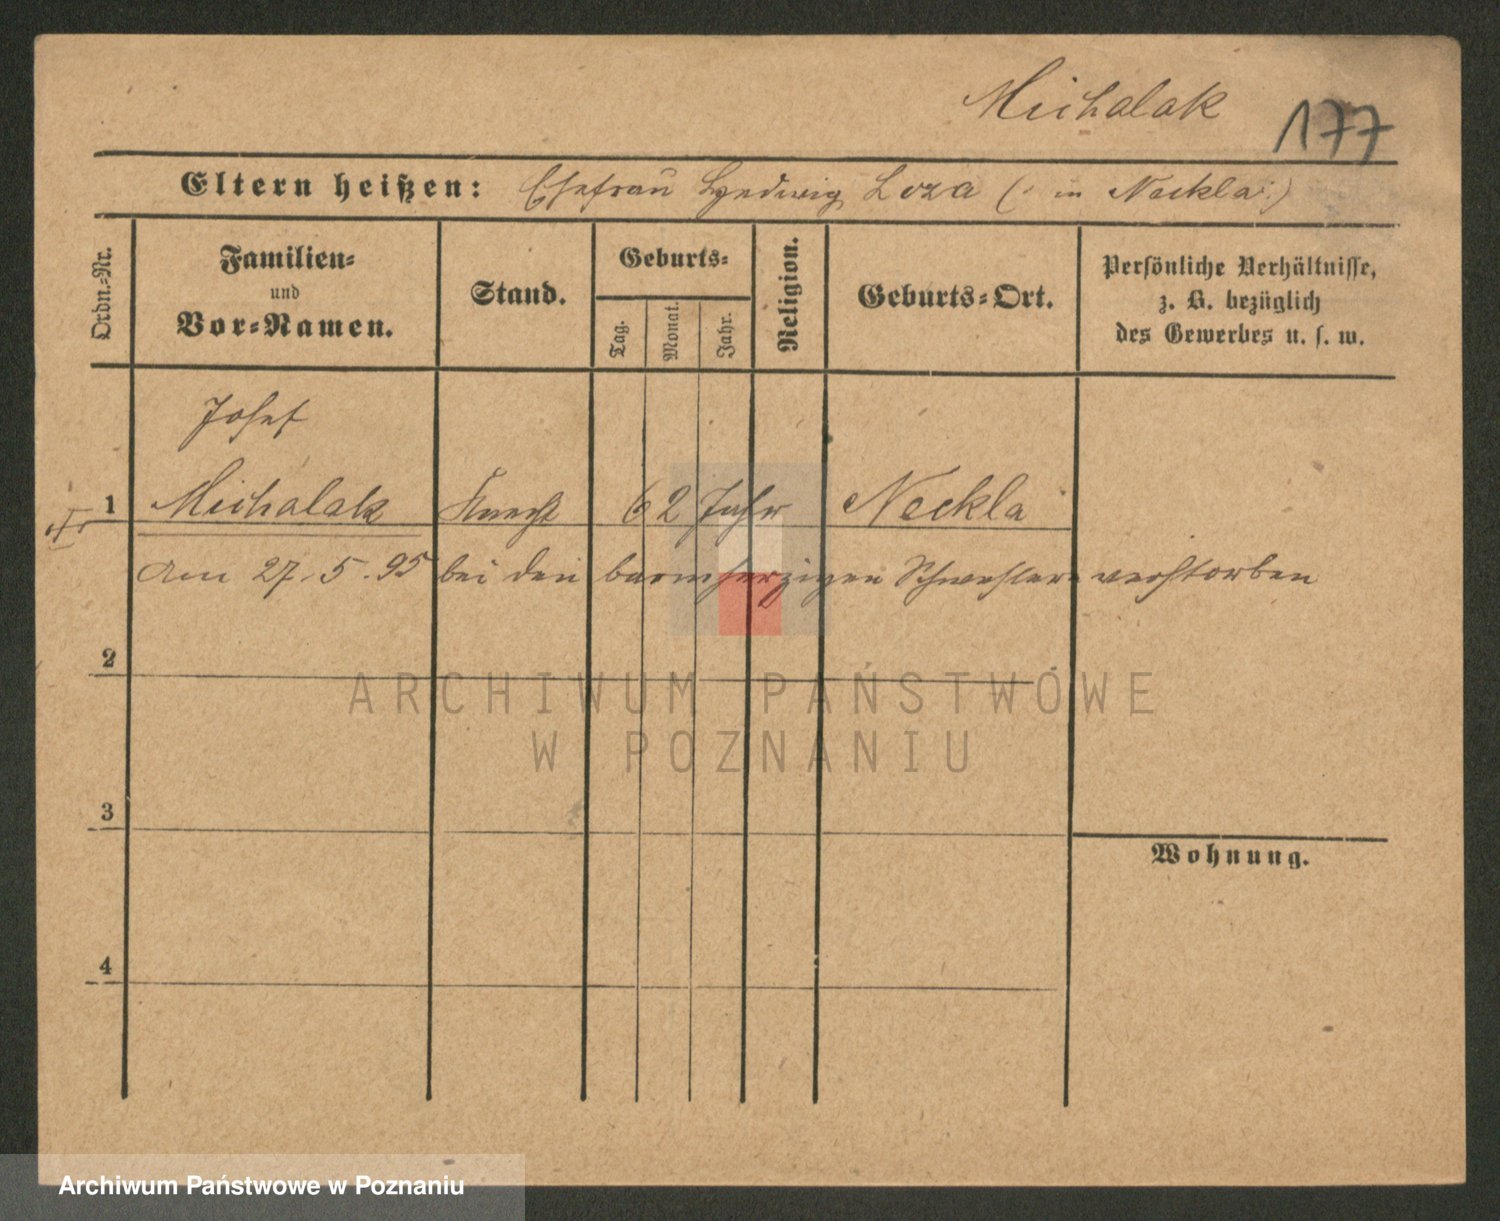 Michalak
177
Eltern heißen: Ehefrau Hedwig Loza (: in Neckla :)
Ordn.-Nr.
Familien-
und
Vor-Namen.
Stand.
Geburts-
Tag.
Monat.
Jahr.
Religion.
Geburts-Ort.
Persönliche Verhältnisse,
z. B. bezüglich
des Gewerbes u. s. w.
Josef
1 Michalak Knecht 62 Jahr Neckla
Am 27. 5. 95 bei den barmherzigen Schwestern verstorben
2
ARCHIWUM PAŃSTWOWE
W POZNANIU
3
Wohnung.
4
Archiwum Państwowe w Poznaniu